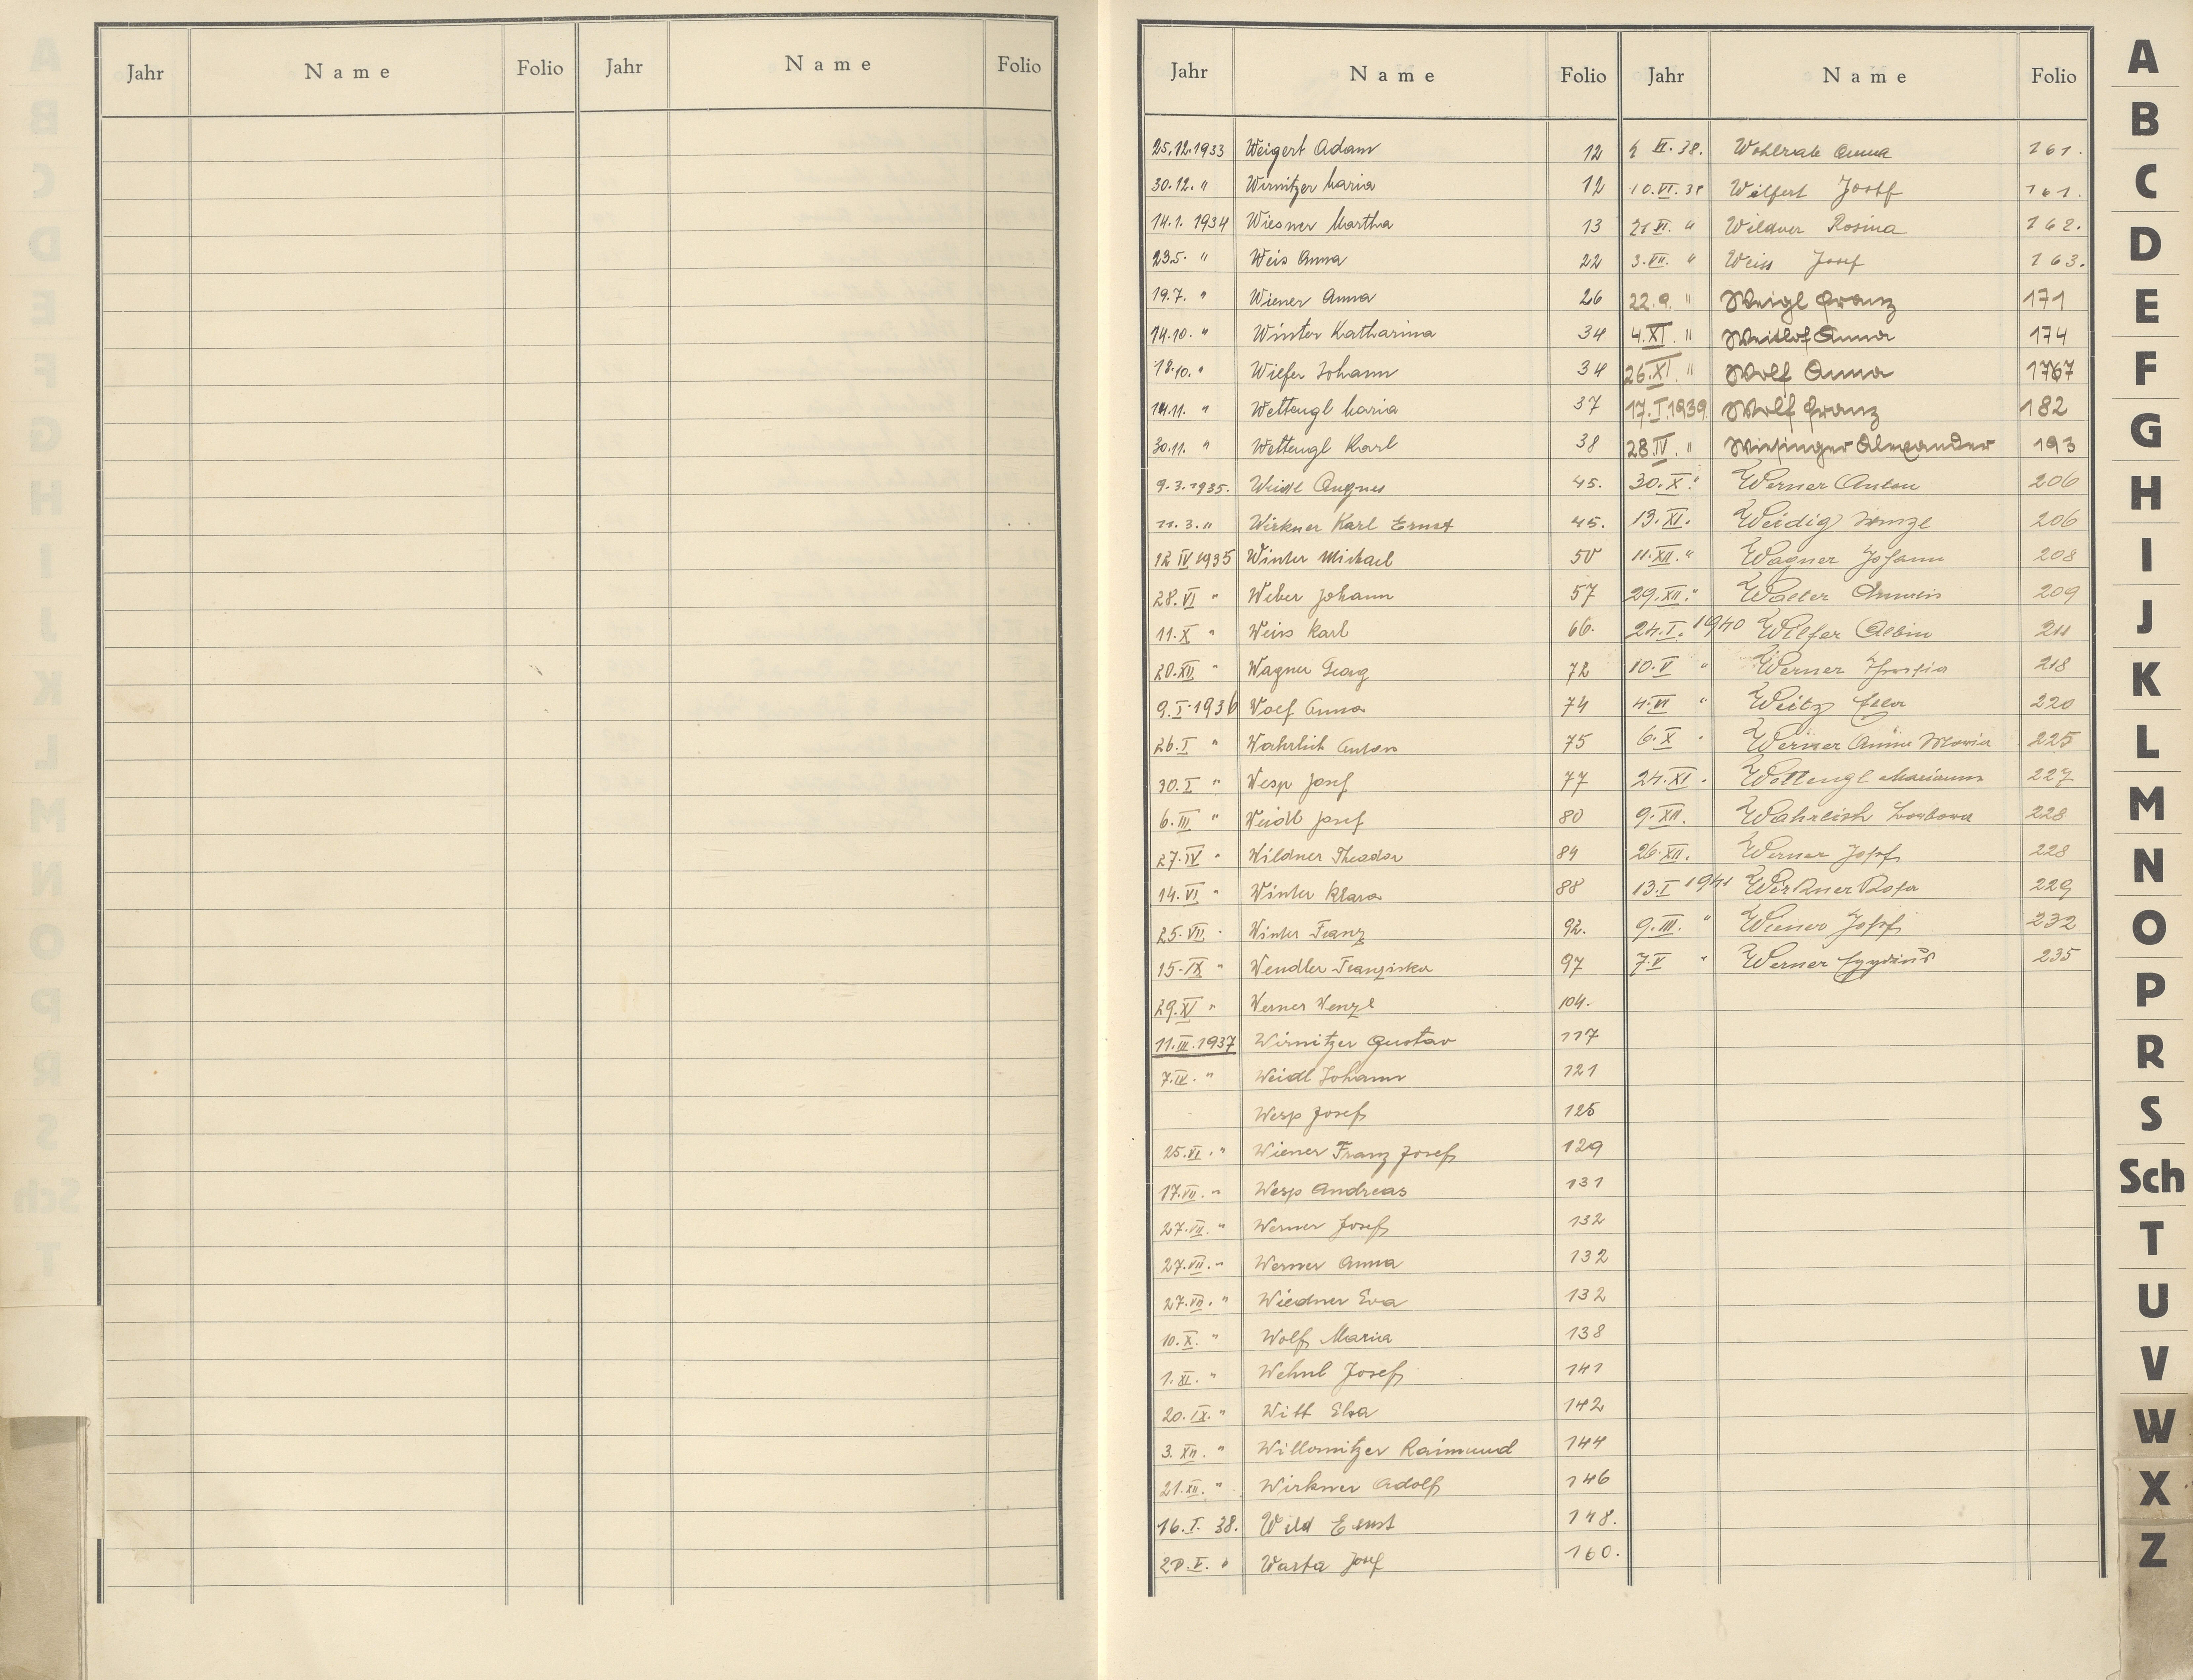 Jahr Name Folio Jahr Name Folio
Jahr Name Folio Jahr Name Folio
25.12.1933 Weigert Adam 12
30.12. " Wirnitzer Maria 12
14.1. 1934 Wiesner Martha 13
23.5. " Weis Anna 22
19.7. " Wiener Anna 26
14.10. " Winter Katharina 34
18.10. " Wilfer Johann 34
14.11. " Wettengl Maria 37
30.11. " Wettengl Karl 38
9.3.1935. Weidl Angnes 45.
11.3. " Wirkner Karl Ernst 45.
12 IV 1935 Winter Michael 50
28.VI " Weber Johann 57
11.X " Weiss Karl 66.
20.XII " Wagner Georg 72
9.I.1936 Wolf Anna 74
26.I " Wahrlich Anton 75
30.I " Wesp Josef 77
6.III " Weidl Josef 80
27.IV " Wildner Theodor 84
14.VI " Winter Klara 88
25.VII " Winter Franz 92.
15.IX " Wendler Franziska 97
29.XI " Werner Wenzl 104.
11.III.1937 Wirnitzer Gustav 117
7.IV. " Weidl Johann 121
Wesp Josef 125
25.VI. " Wiener Franz Josef 129
17.VII. " Wesp Andreas 131
27.VII. " Werner Josef 132
27.VII. " Werner Anna 132
27.VII. " Wiedner Eva 132
10.X. " Wolf Maria 138
1.XI. " Wehnl Josef 141
20.IX. " Witt Elsa 142
3.XII. " Willomitzer Raimund 144
21.XII. " Wirkner Adolf 146
16.I. 38. Wild Ernst 148.
20.V. " Warta Josef 160.
VI. 38. Wohlrab Anna 161.
10.VI.38 Wilfert Josef 161.
21 VI. " Wildner Rosina 162.
3.VII. " Weiss Josef 163.
22.9. " Weigl Franz 171
4.XI. " Weitlof Anna 174
26.XI. " Wolf Anna 1767
17.I.1939 Wolf Franz 182
28.IV. " Wiesinger Alexander 193
30.X. " Werner Anton 206
13.XI. Weidig 206
11.XII. " Wagner Johann 208
29.XII. " Walter 209
24.I. 1940 Wilfer Albin 211
10.V " Werner 218
4.VI " Weitz 220
6.X " Werner Anna Maria 225
24.XI. Wettengl Marianna 227
9.XII. Wahrlich Barbara 228
26.XII. Werner Josef 228
13.I 1941 Wirkner Rosa 229
9.III. " Wiener Josef 232
7.V " Werner Egydius 235
A
B
C
D
E
F
G
H
I
J
K
L
M
N
O
P
R
S
Sch
T
U
V
W
X
Z